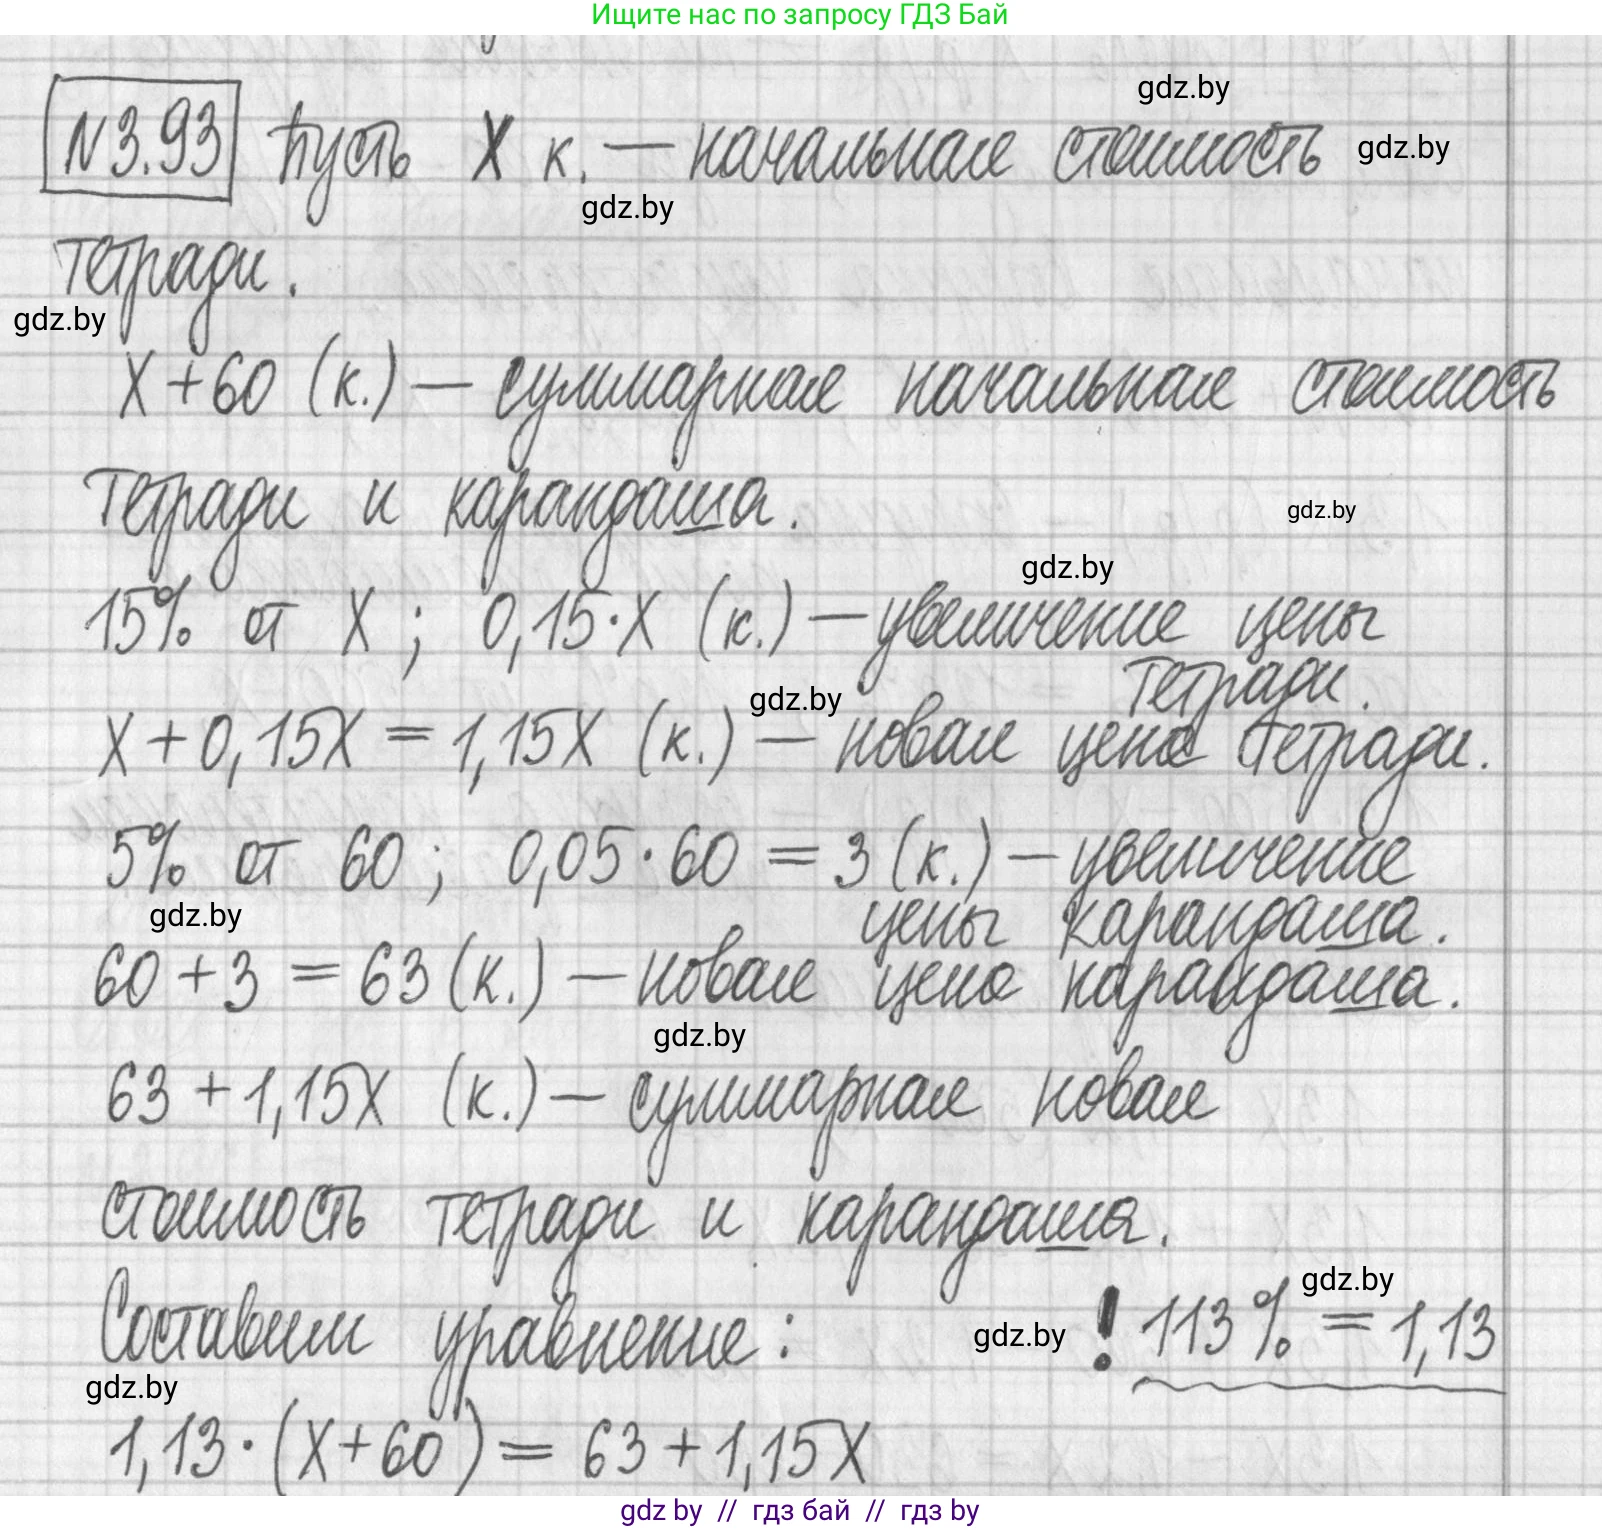 Ищите нас по запросу ГДЗ Бай
gdz.by
N3.93 Пусть X к. — начальная стоимость gdz.by
gdz.by
тетради.
gdz.by
X+60 (к.) — суммарная начальная стоимость
тетради и карандаша.
gdz.by
gdz.by
15% от X ; 0,15·X (к.) — увеличение цены
тетради.
gdz.by
X+0,15X = 1,15X (к.) — новая цена тетради.
5% от 60 ; 0,05·60 = 3 (к.) — увеличение
gdz.by
цены карандаша.
60+3 = 63 (к.) — новая цена карандаша.
gdz.by
63+1,15X (к.) — суммарная новая
стоимость тетради и карандаша.
gdz.by
Составим уравнение: gdz.by ! 113% = 1,13
gdz.by
1,13·(X+60) = 63+1,15X
gdz by // гдз бай // gdz by